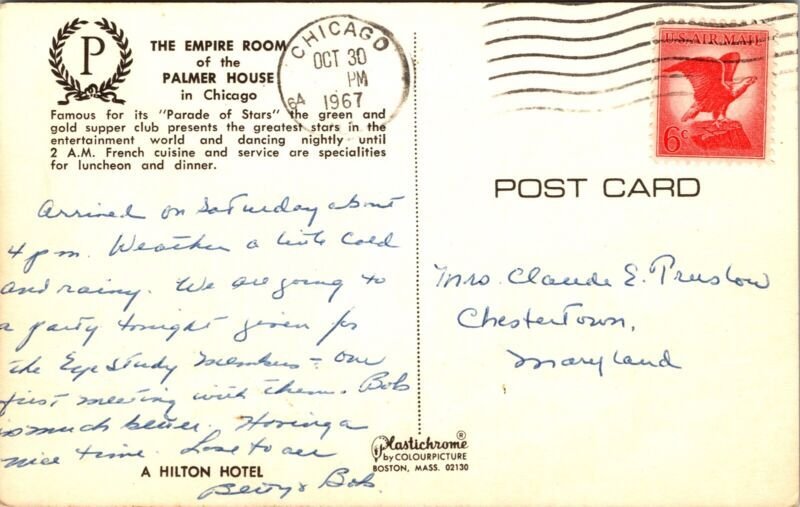 P
THE EMPIRE ROOM
of the
PALMER HOUSE
in Chicago
Famous for its "Parade of Stars" the green and
gold supper club presents the greatest stars in the
entertainment world and dancing nightly until
2 A.M. French cuisine and service are specialities
for luncheon and dinner.
CHICAGO
OCT 30
PM
1967
64
U.S. AIR MAIL
6c
POST CARD
Arrived on Saturday about
4 pm. Weather a little cold
and rainy. We are going to
a party tonight given for
the Eye Study members – our
first meeting with them. Bob
is much better. Having a
nice time. Love to all
Betty & Bob.
Mrs. Claude E.
Chestertown,
Maryland
A HILTON HOTEL
Plastichrome®
by COLOURPICTURE
BOSTON, MASS. 02130